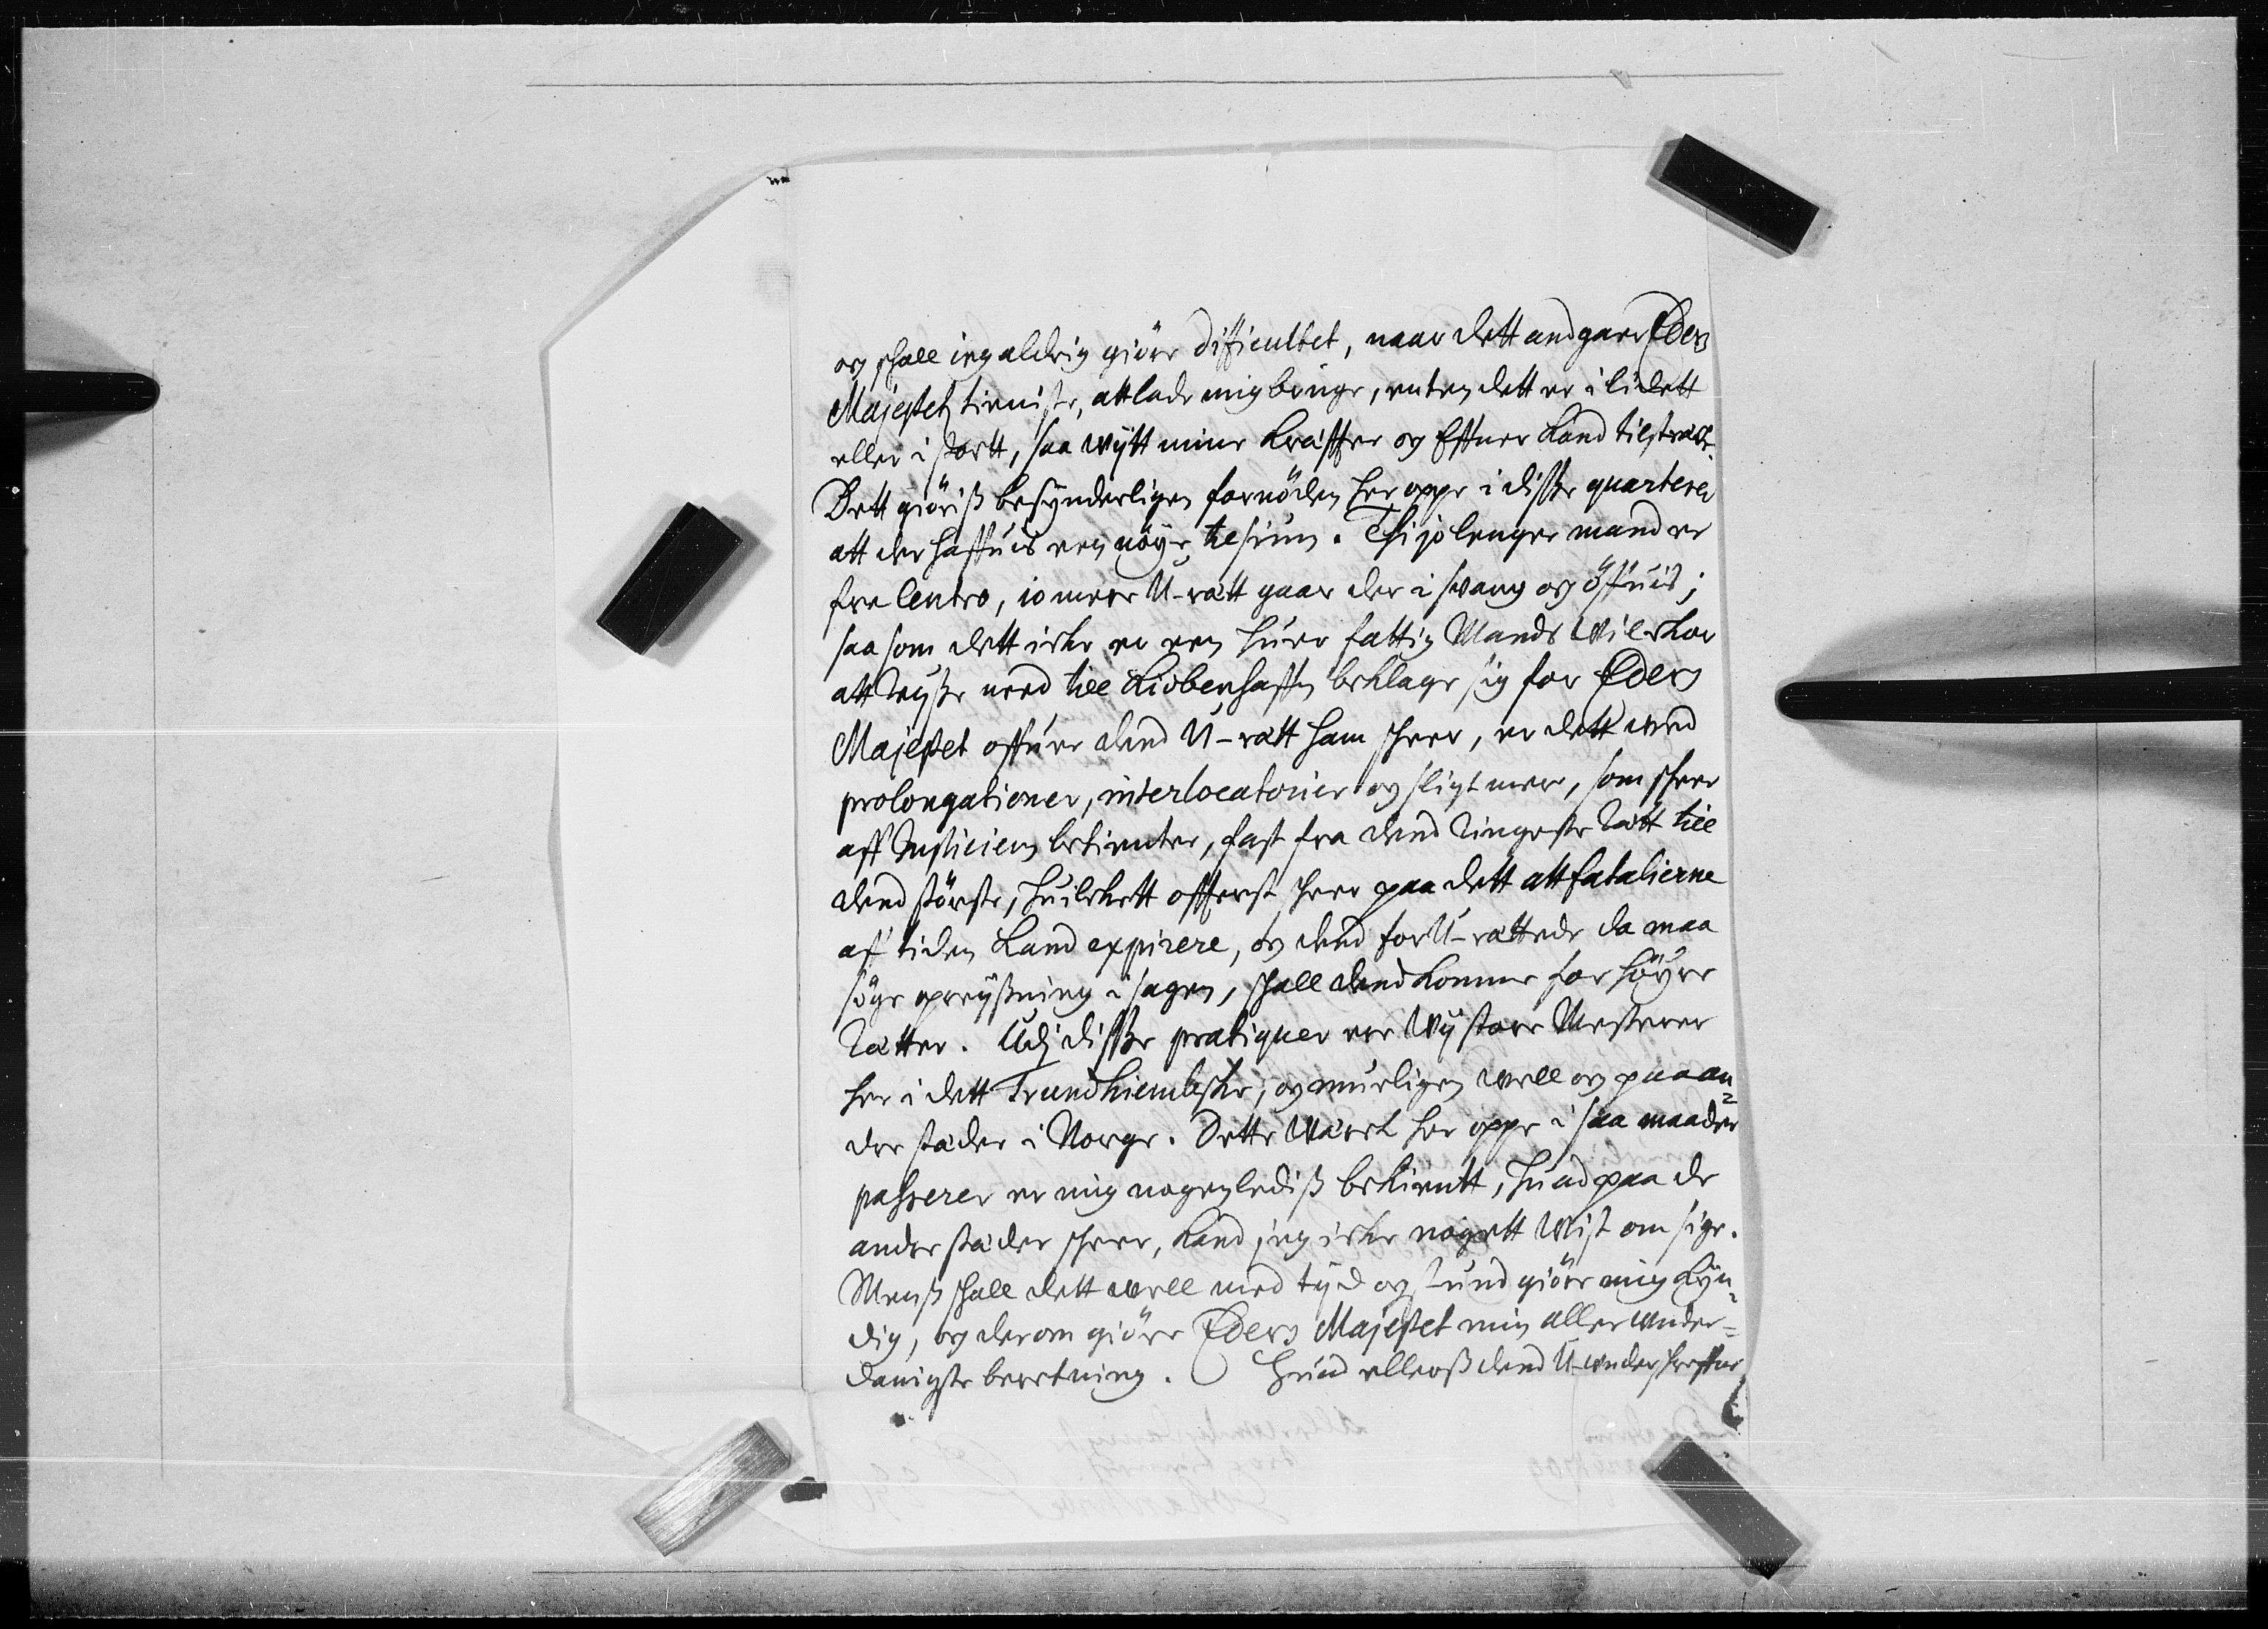 og schall ieg aldrig giöre dificultet, naar dett andgaar Eders
Majestetz tieniste, att lade mig bruge, enten dett er i lidett
eller i stortt, saa wytt mine Kräffter og Effner Kand tilsträcke.
Dett giöris besynderligen fornöden her oppe i disse quarterer
att der haffues een nöye tilsiun. Thi jo lenger mand er
fra Centro, io meer U-rätt gaar der i swang og öffuis;
saa som dett icke er een huer fattig Mands Wilckor
att Reysse need till Kiöbenhaffn beklage sig for Eders
Majestet offuer dend U-rätt ham scheer, er dett med
prolongationer, interlocatorier og sligt meer, som scheer
aff Justiciens betienter, fast fra dend Ringeste Rätt till
dend störste, huilckett offterst scheer paa dett att fatalierne
aff tiden Kand expirere, og dend forU-rättede da maa
söge opreyssning i sagen, schall dend komme for höyere
Rätter. Udj disse pratiquer ere Wij store Mesterer
her i dett Trundhiembske, og mueligen well og paa an¬
dre stæder i Norge. Dette Wærck her oppe i saa maader
passerer er mig nogenledis bekientt, huad paa de
andre stæder scheer, Kand jeg icke nogett Wist om sige.
Menss schall dett well med tyd og stund giöre mig Kyn¬
dig, og derom giöre Eders Majestet min aller under¬
danigste beretning. Huad elleross dend U-